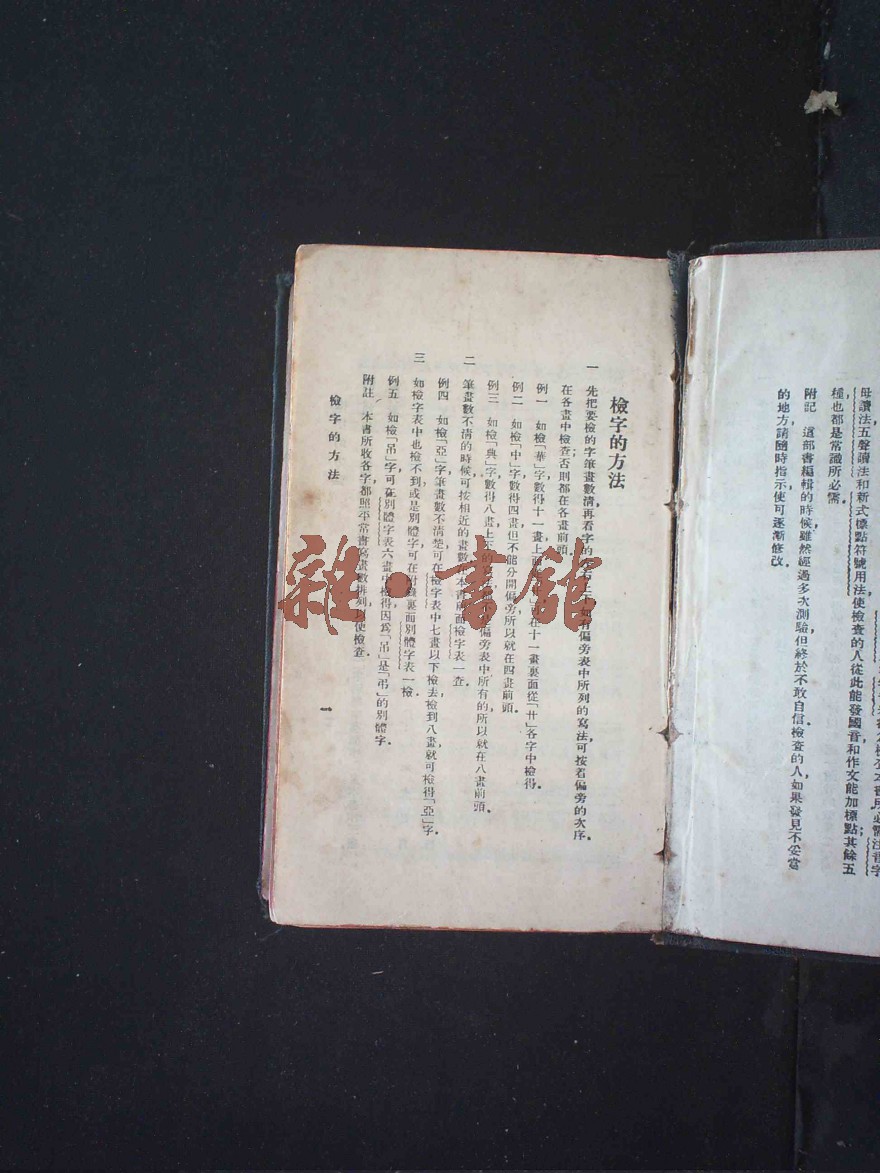 母讀法五聲讀法和新式標點符號用法使檢查的人從此能發國音和作文能加標點其餘五
種也都是常識所必需
附記 這部書編輯的時候雖然經過多次測驗但終於不敢自信檢查的人如果發見不妥當
的地方請隨時指示使可逐漸修改.
檢字的方法
一 先把要檢的字筆畫數清,再看字的 如有偏旁表中所列的寫法,可按着偏旁的次序.
在各畫中檢查;否則都在各畫前頭.
例一 如檢「華」字數得十一畫上面 在十一畫裏面從「廾」各字中檢得.
例二 如檢「中」字數得四畫但不能分開偏旁所以就在四畫前頭.
例三 如檢「典」字數得八畫上 的 偏旁表中所有的所以就在八畫前頭.
二 筆畫數不清的時候,可按相近的畫數 本書 面檢字表一查.
例四 如檢「亞」字筆畫數不清楚可在檢字表中七畫以下檢去檢到八畫就可檢得「亞」字.
三 如檢字表中也檢不到或是別體字可在附錄裏面別體字表一檢.
例五 如檢「吊」字可在別體字表六畫中檢得因爲「吊」是「弔」的別體字.
附註 本書所收各字都照平常書寫畫數排列以便檢查.
檢字的方法
一
雜·書館